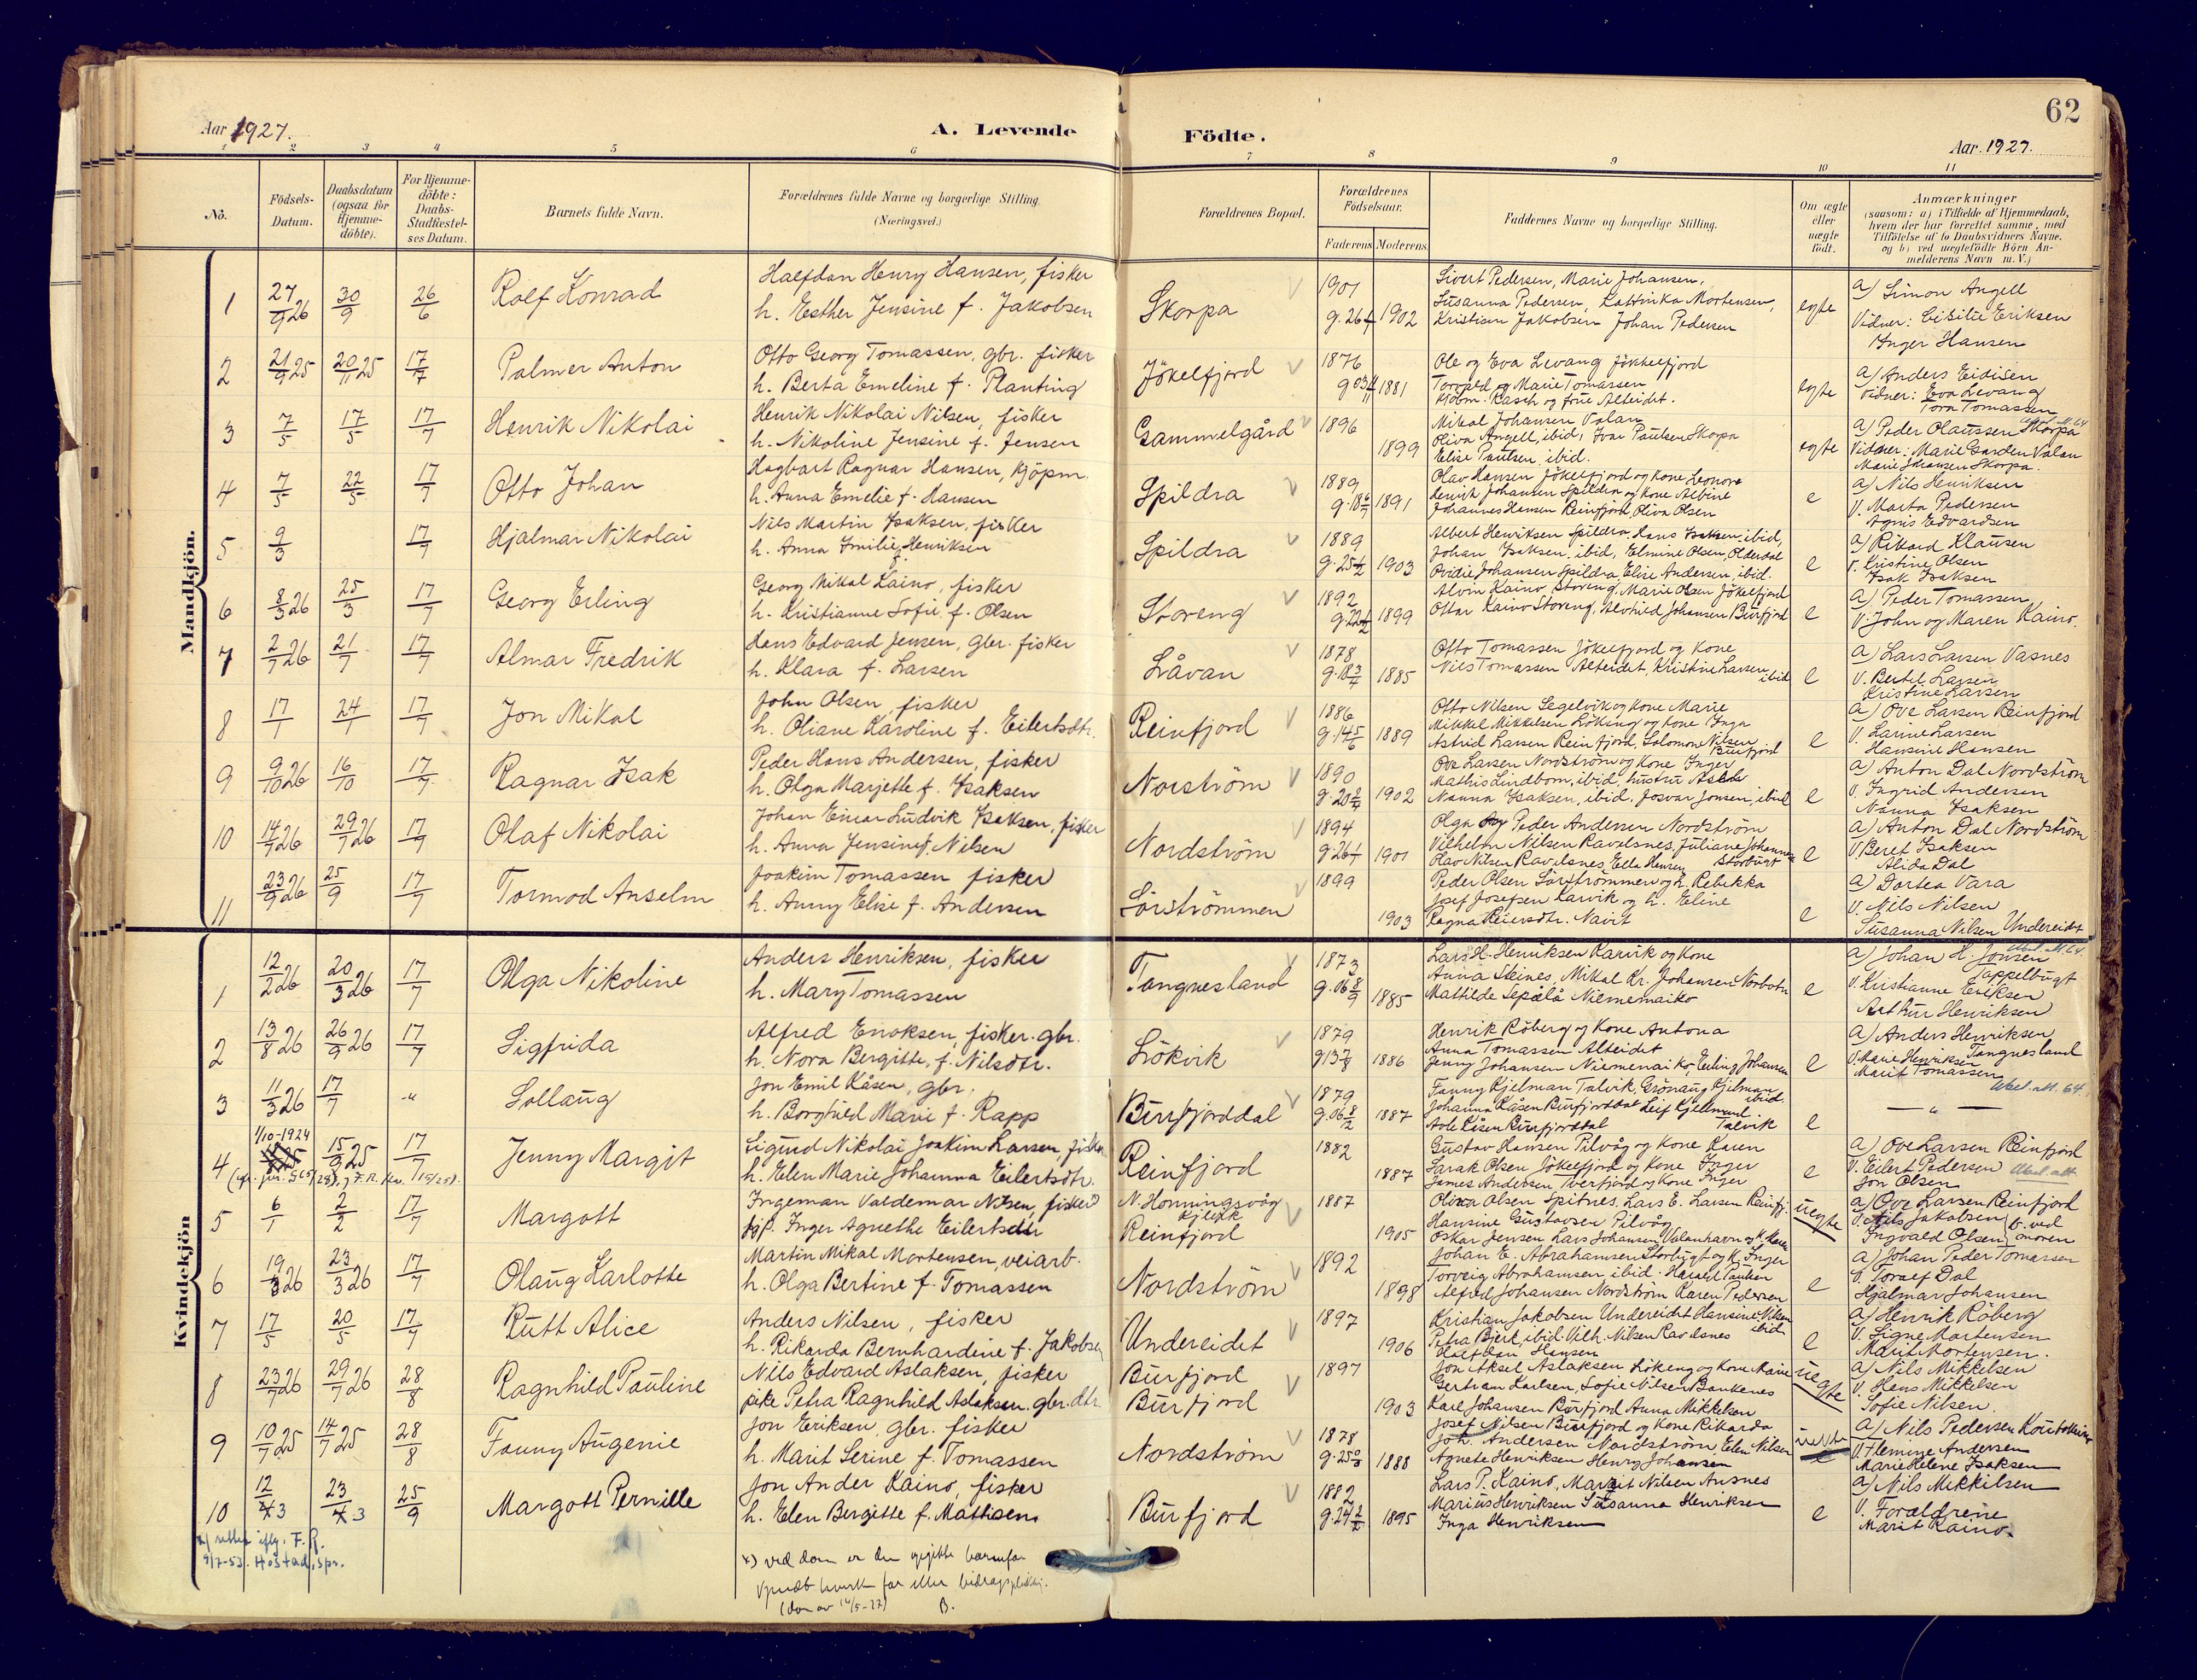 62
Aar 1927. A. Levende Födte. Aar. 1927.
1 2 3 4 5 6 7 8 9 10 11
No.
Födsels-
Datum.
Daabsdatum
(ogsaa for
Hjemme-
döbte).
For Hjemme-
döbte:
Daabs-
Stadfæstel-
ses Datum.
Barnets fulde Navn.
Forældrenes fulde Navne og borgerlige Stilling.
(Næringsvei.)
Forældrenes Bopæl.
Forældrenes
Födselsaar.
Faderens Moderens
Faddernes Navne og borgerlige Stilling.
Om ægte
eller
uægte
födt.
Anmærkninger
(saasom: a) i Tilfælde af Hjemmedaab,
hvem der har forrettet samme, med
Tilföielse af to Daabsvidners Navne.
og b) ved uægtefödte Börn An-
melderens Navn m. V.)
Mandkjön.
1 27/9 26 30/9 26/6 Rolf Konrad
Halfdan Henry Hansen, fisker
h. Esther Jensine f. Jakobsen
Skorpa
1901
1902
Sivert Pedersen, Marie Johansen,
Susanna Pedersen, Kathrinka Mortensen,
Kristian Jakobsen Johan Pedersen
egte
a) Simon Angell
Vidner: Cisilie Eriksen
Inger Hansen
2 21/9 25 20/11 25 17/7 Palmer Anton
Otto Georg Tomassen, gbr. fisker
h. Berta Emeline f. Planting
Jökelfjord
1876
1881
Ole og Eva Levang Jökkelfjord
Torvald og Marie Tomassen
Kjöbm. Rasch og frue Alteidet.
egte
a) Anders Eidisen
vidner: Eva Levang
Tora Tomassen
3 7/5 17/5 17/7 Henrik Nikolai
Henrik Nikolai Nilsen, fisker
h. Nikoline Jensine f. Jensen
Gammelgård
1896
1899
Mikal Johansen Valan
Oliva Angell, ibid, Ivar Paulsen Skorpa
Elise Paulsen ibid.
egte
a) Peder Olaussen Skorpa
Vidner: Marie Garden Valan
Marie Johansen Skorpa.
4 7/5 22/5 17/7 Otto Johan
Hagbart Ragnar Hansen, kjöpm.
h. Anna Emelie f. Hansen
Spildra
1889
1891
Olav Hansen Jökelfjord og Kone Leonore
Henrik Johansen Spildra og Kone Albine
Johannes Hansen Reinfjord, Oliva Olsen
e
a) Nils Henriksen
V. Marta Pedersen
Agnis Edvardsen
5 9/3 17/7 Hjalmar Nikolai
Nils Martin Isaksen, fisker
h. Anna Emilie Henriksen
Spildra
1889
1903
Albert Henriksen Spildra, Hans Isaksen, ibid,
Johan Isaksen, ibid, Elmine Olsen, Olderdal
Ovidie Johansen Spildra, Elise Andersen, ibid.
e
a) Rikard Klausen
V. Kristine Olsen
Isak Isaksen
6 8/3 26 25/3 17/7 Georg Erling
Georg Mikal Kaino, fisker
h. Kristianne Sofie f. Olsen
Storeng
1892
1899
Alvin Kaino Storeng, Marie Olsen Jökelfjord
Ottar Kaino Storeng, Alvhild Johansen Burfjord
e
a) Peder Tomassen
V. John og Maren Kaino.
7 2/7 26 21/7 17/7 Almar Fredrik
Hans Edvard Jensen, gbr. fisker
h. Klara f. Larsen
Låvan
1878
1885
Otto Tomassen Jökelfjord og Kone
Nils Tomassen Alteidet, Kristine Larsen
ibid
e
a) Lars Larsen Vasnes
V. Bertil Larsen
Kristine Larsen
8 17/1 24/1 17/7 Jon Mikal
John Olsen, fisker
h. Oliane Karoline f. Eilertsdtr.
Reinfjord
1886
1889
Otto Nilsen Segelvik og Kone Marie
Mikkel Mikkelsen Löking og Kone Inga
Astrid Larsen Reinfjord, Solomon Nilsen
Burfjord
e
a) Ove Larsen Reinfjord
V. Larine Larsen
Hansine Hansen
9 9/10 26 16/10 17/7 Ragnar Isak
Peder Hans Andersen, fisker
h. Olga Marjette f. Isaksen
Norström
1890
1902
Ove Larsen Nordström og Kone Inger
Mathis Lindbom, ibid, hustru
Nanna Isaksen, ibid. Josvar Jonsen, ibid
e
a) Anton Dal Nordström
V. Ingrid Andersen
Nanna Isaksen
10 14/7 26 29/7 26 17/7 Olaf Nikolai
Johan Einar Ludvik Isaksen, fisker
h. Anna Jensine f. Nilsen
Nordström
1894
1901
Olga Peder Andersen Nordström
Vilhelm Nilsen Ravelsnes, Juliane Johannes
Olav Nilsen Ravelsnes, Ella Hansen Storbugt
e
a) Anton Dal Nordström
V Beret Isaksen
Alida Dal
11 23/9 26 25/9 17/7 Tormod Anselm
Joakim Tomassen fisker
h. Anny Elise f. Andersen
Sörströmmen
1899
1903
Peder Olsen Sörströmmen og h. Rebekka
Josef Josefsen Karvik og h. Eline
Ragna Reiersdtr. Navit
e
a) Dortea Vara
V. Nils Nilsen
Susanna Nilsen Undereidet
Kvindekjön
1 12/2 26 20/3 26 17/7 Olga Nikoline
Anders Henriksen, fisker
h. Mary Tomassen
Tangnesland
1873
1885
Lars H. Henriksen Karvik og Kone
Anna Steines, Mikal Kr. Johansen Norbotn
Mathilde Sepälä Niemenaiko
e
a) Johan H. Jonsen
Sappelbugt
V. Kristianne Eriksen
Arthur Henriksen
2 13/8 26 26/9 26 17/7 Sigfrida
Alfred Enoksen, fisker. gbr.
h. Nora Bergitte, f. Nilsdtr.
Lökvik
1879
1886
Henrik Röberg og Kone Antona
Anna Tomassen Alteidet
Jenny Johansen Niemenaiko, Erling Johansen
e
a) Anders Henriksen
Tangnesland
V. Marie Henriksen
Marit Tomassen
3 11/3 26 17/7 " Sollaug
Jon Emil Kåsen, gbr.
h. Borghild Marie f. Rapp
Burfjorddal
1879
1887
Fanny Kjelman Talvik, Grönaug Kjelman
ibid.
Johanna Kåsen Burfjorddal Leif Kjellmand
Talvik
e
— " —
4 1/10-1924 15/9 25 17/7 Jenny Margit
Sigurd Nikolai Joakim Larsen, fisker
h. Elen Marie Johanna Eilertsdtr.
Reinfjord
1882
1887
Gustav Hansen Pilvåg og Kone Karen
Sarak Olsen Jökelfjord og Kone Inger
James Andersen Tverfjord og Kone Inger
e
a) Ove Larsen Reinfjord
V. Eilert Pedersen
Jon Olsen
5 6/1 2/2 17/7 Margott
Ingeman Valdemar Nilsen, fisker
Inger Agnethe Eilertsdtr
N. Honningsvåg
Reinfjord
1887
1905
Oliva Olsen Spitnes, Lars E. Larsen Reinfj.
Hansine Gustavsen Pilvåg
Oskar Jensen Lars Johansen, Valanhavn og K. Karen
uegte
a) Ove Larsen Reinfjord
V. Nils Jakobsen
Ingvald Olsen
b. ved
moren
6 19/3 26 23/3 26 17/7 Olaug Karlotte
Martin Mikal Mortensen, veiarb.
h. Olga Bertine f. Tomassen
Nordström
1892
1898
Johan E. Abrahamsen Storbugt og K. Inger
Torveig Abrahamsen, ibid. Harald Paulsen
Alfred Johansen Nordström Karen Pedersen
e
a) Johan Peder Tomassen
V. Toralf Dal
Hjalmar Johansen
7 17/5 20/5 17/7 Rutt Alice
Anders Nilsen, fisker
h. Rikarda Bernhardine f. Jakobsen
Undereidet
1897
1906
Kristian Jakobsen Undereidet Hansine Nilsen
ibid
Petra Bjerk, ibid. Vilh. Nilsen Ravelsnes
Halfdan Hansen
e
a) Henrik Röberg
V. Signe Mortensen
Marit Mortensen.
8 23/7 26 29/7 26 28/8 Ragnhild Pauline
Nils Edvard Aslaksen, fisker
pike Petra Ragnhild Aslaksen. gbr. dtr.
Burfjord
Burfjord
1897
1903
Jon Aksel Aslaksen Lökeng og Kone Marie
Gertram Karlsen, Sofie Nilsen
Karl Johansen Burfjord Anna Mikkelsen
Josef Nilsen Burfjord og Kone Rikarda
uegte
a) Nils Mikkelsen
V. Hans Mikkelsen
Sofie Nilsen.
9 10/7 25 14/7 25 28/8 Fanny Augenie
Jon Eriksen, gbr. fisker
h. Marit Serine f. Tomassen
Nordström
1878
1888
Joh. Andersen Nordström Elen Nilsen
Agnete Henriksen Henry Johansen
e
a) Nils Pedersen Koutokeino
V. Flemine Andersen
Marie Helene Isaksen
10 12/3 23/3 25/9 Margott Pernille
Jon Ander Kaino, fisker
h. Elen Bergitte f. Mathisen
Burfjord
1882
1895
Lars P. Kaino, Margit Nilsen Ansnes
Marius Henriksen Susanna Henriksen
Inga Henriksen
e
a) Nils Mikkelsen
V. Forældrene
Marit Kaino.
x) rettet iflg. F. R.
9/7-53. Hostad, spr.
x) ved dom er den opgitte barnefar
(dom av 14/5-27) B.